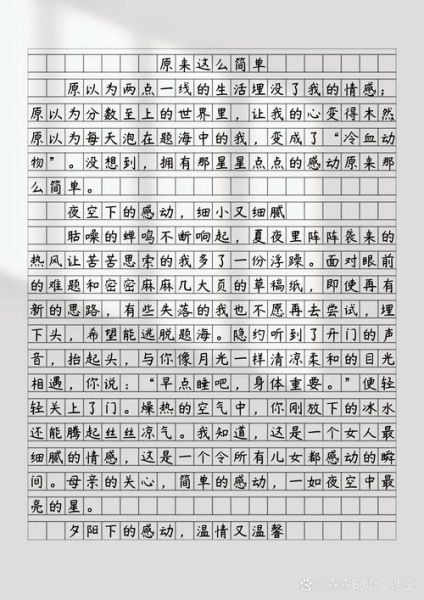 原来这么简单
原以为两点一线的生活埋没了我的情感；
原以为分数至上的世界里，让我的心变得木然
原以为每天泡在题海中的我，变成了“冷血动
物”。没想到，拥有那星星点点的感动原来那
么简单。
夜空下的感动，细小又细腻
聒噪的蝉鸣不断响起，夏夜里阵阵袭来的
热风让苦苦思索的我多了一份浮躁。面对眼前
的难题和密密麻麻几大页的草稿纸，即使再有
新的思路，有些失落的我也不愿再去尝试，埋
下头，希望能逃脱题海。隐约听到了开门的声
音，抬起头，与你像月光一样清凉柔和的目光
相遇，你说：“早点睡吧，身体重要。”便轻
轻关上了门。燥热的空气中，你刚放下的冰水
还能腾起丝丝凉气。我知道，这是一个女人最
细腻的情感，这是一个令所有儿女都感动的瞬
间。母亲的关心，简单的感动，一如夜空中最
亮的星。
夕阳下的感动，温情又温馨